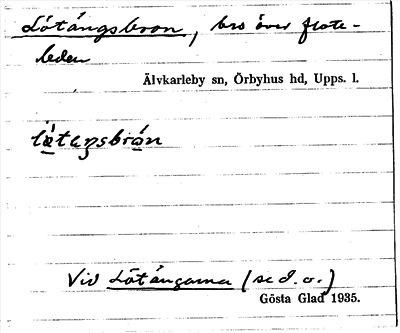 Lötängsbron, bro över flote-
leden
Älvkarleby sn, Örbyhus hd, Upps. l.
lö̀taŋsbrón
Vid Lötängarna (se d. o.)
Gösta Glad 1935.